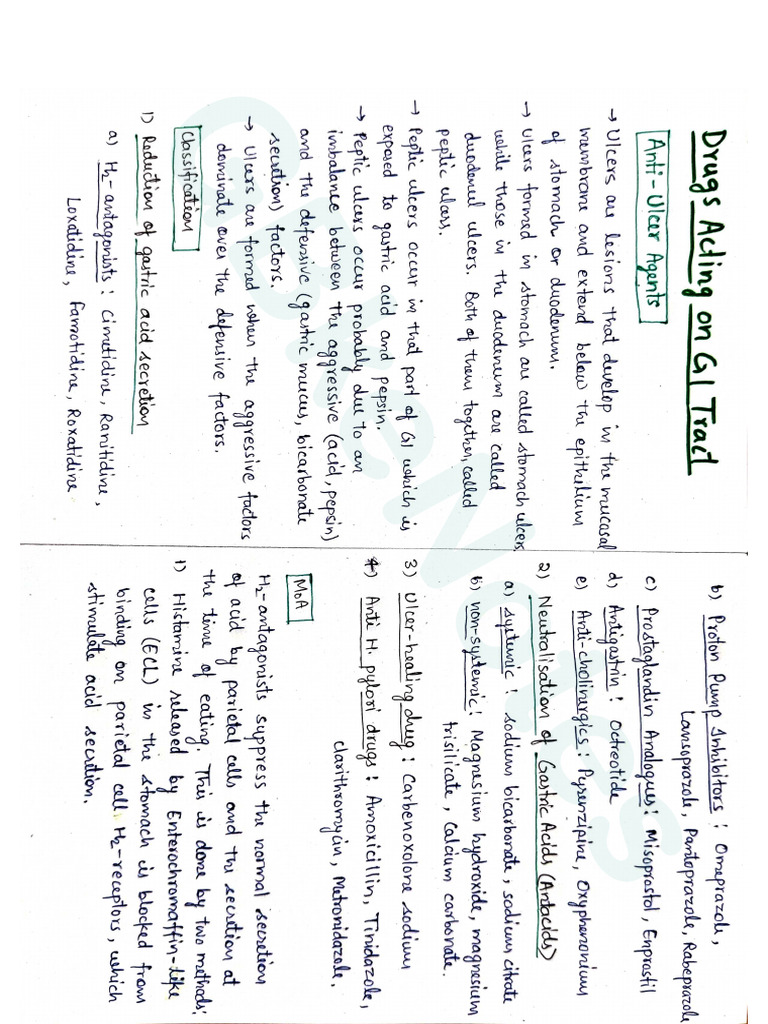 Drugs Acting on GI Tract
Anti-Ulcer Agents
→ Ulcers are lesions that develop in the mucosal
membrane and extend below the epithelium
of stomach or duodenum.
→ Ulcers formed in stomach are called stomach ulcers,
while those in the duodenum are called
duodenal ulcers. Both of them together, called
peptic ulcers.
→ Peptic ulcers occur in that part of GI which is
exposed to gastric acid and pepsin.
→ Peptic ulcers occur probably due to an
imbalance between the aggressive (acid, pepsin)
and the defensive (gastric mucus, bicarbonate
secretion) factors.
→ Ulcers are formed when the aggressive factors
dominate over the defensive factors.
Classification
1) Reduction of gastric acid secretion
a) H₂-antagonists: Cimetidine, Ranitidine,
Loxatidine, Famotidine, Roxatidine
b) Proton Pump Inhibitors: Omeprazole,
Lansoprazole, Pantoprazole, Rabeprazole
c) Prostaglandin Analogues: Misoprostol, Enprastil
d) Antigastrin: Octreotide
e) Anti-cholinergics: Pyrenzipine, Oxyphenonium
2) Neutralisation of Gastric Acids (Antacids)
a) systemic: sodium bicarbonate, sodium citrate
b) non-systemic: Magnesium hydroxide, magnesium
trisilicate, calcium carbonate.
3) Ulcer-healing drug: Carbenoxolone sodium
4) Anti H. pylori drugs: Amoxicillin, Tinidazole,
clarithromycin, Metronidazole.
MoA
H₂-antagonists suppress the normal secretion
of acid by parietal cells and the secretion at
the time of eating. This is done by two methods:
1) Histamine released by Enterochromaffin-like
cells (ECL) in the stomach is blocked from
binding on parietal cell H₂-receptors, which
stimulate acid secretion.
GBKeNotes